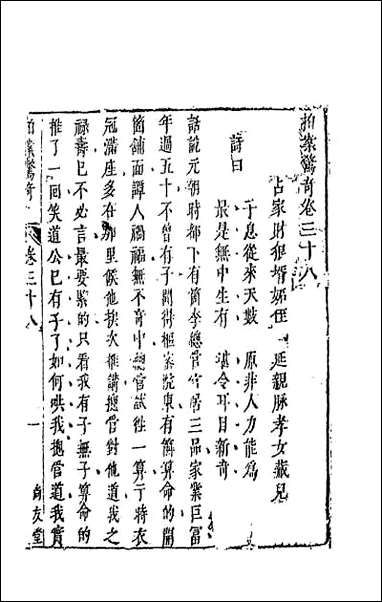 拍案驚奇卷三十八
占家財狠壻妬侄　延親脉孝女藏兒
詩曰
子息從來天數　原非人力能為
最是無中生有　堪令耳目新奇
話說元朝時都下有箇李總管官居三品家業巨富
年過五十不曾有子聞得樞密院東有箇算命的開
箇鋪面譚人禍福無不奇中總管試往一算于時衣
冠滿座多在那里候他挨次推講總管對他道我之
祿壽已不必言最要緊的只看我有子無子算命的
推了一回笑道公已有子了如何哄我總管道我實
拍案驚奇
卷三十八
一
尚友堂